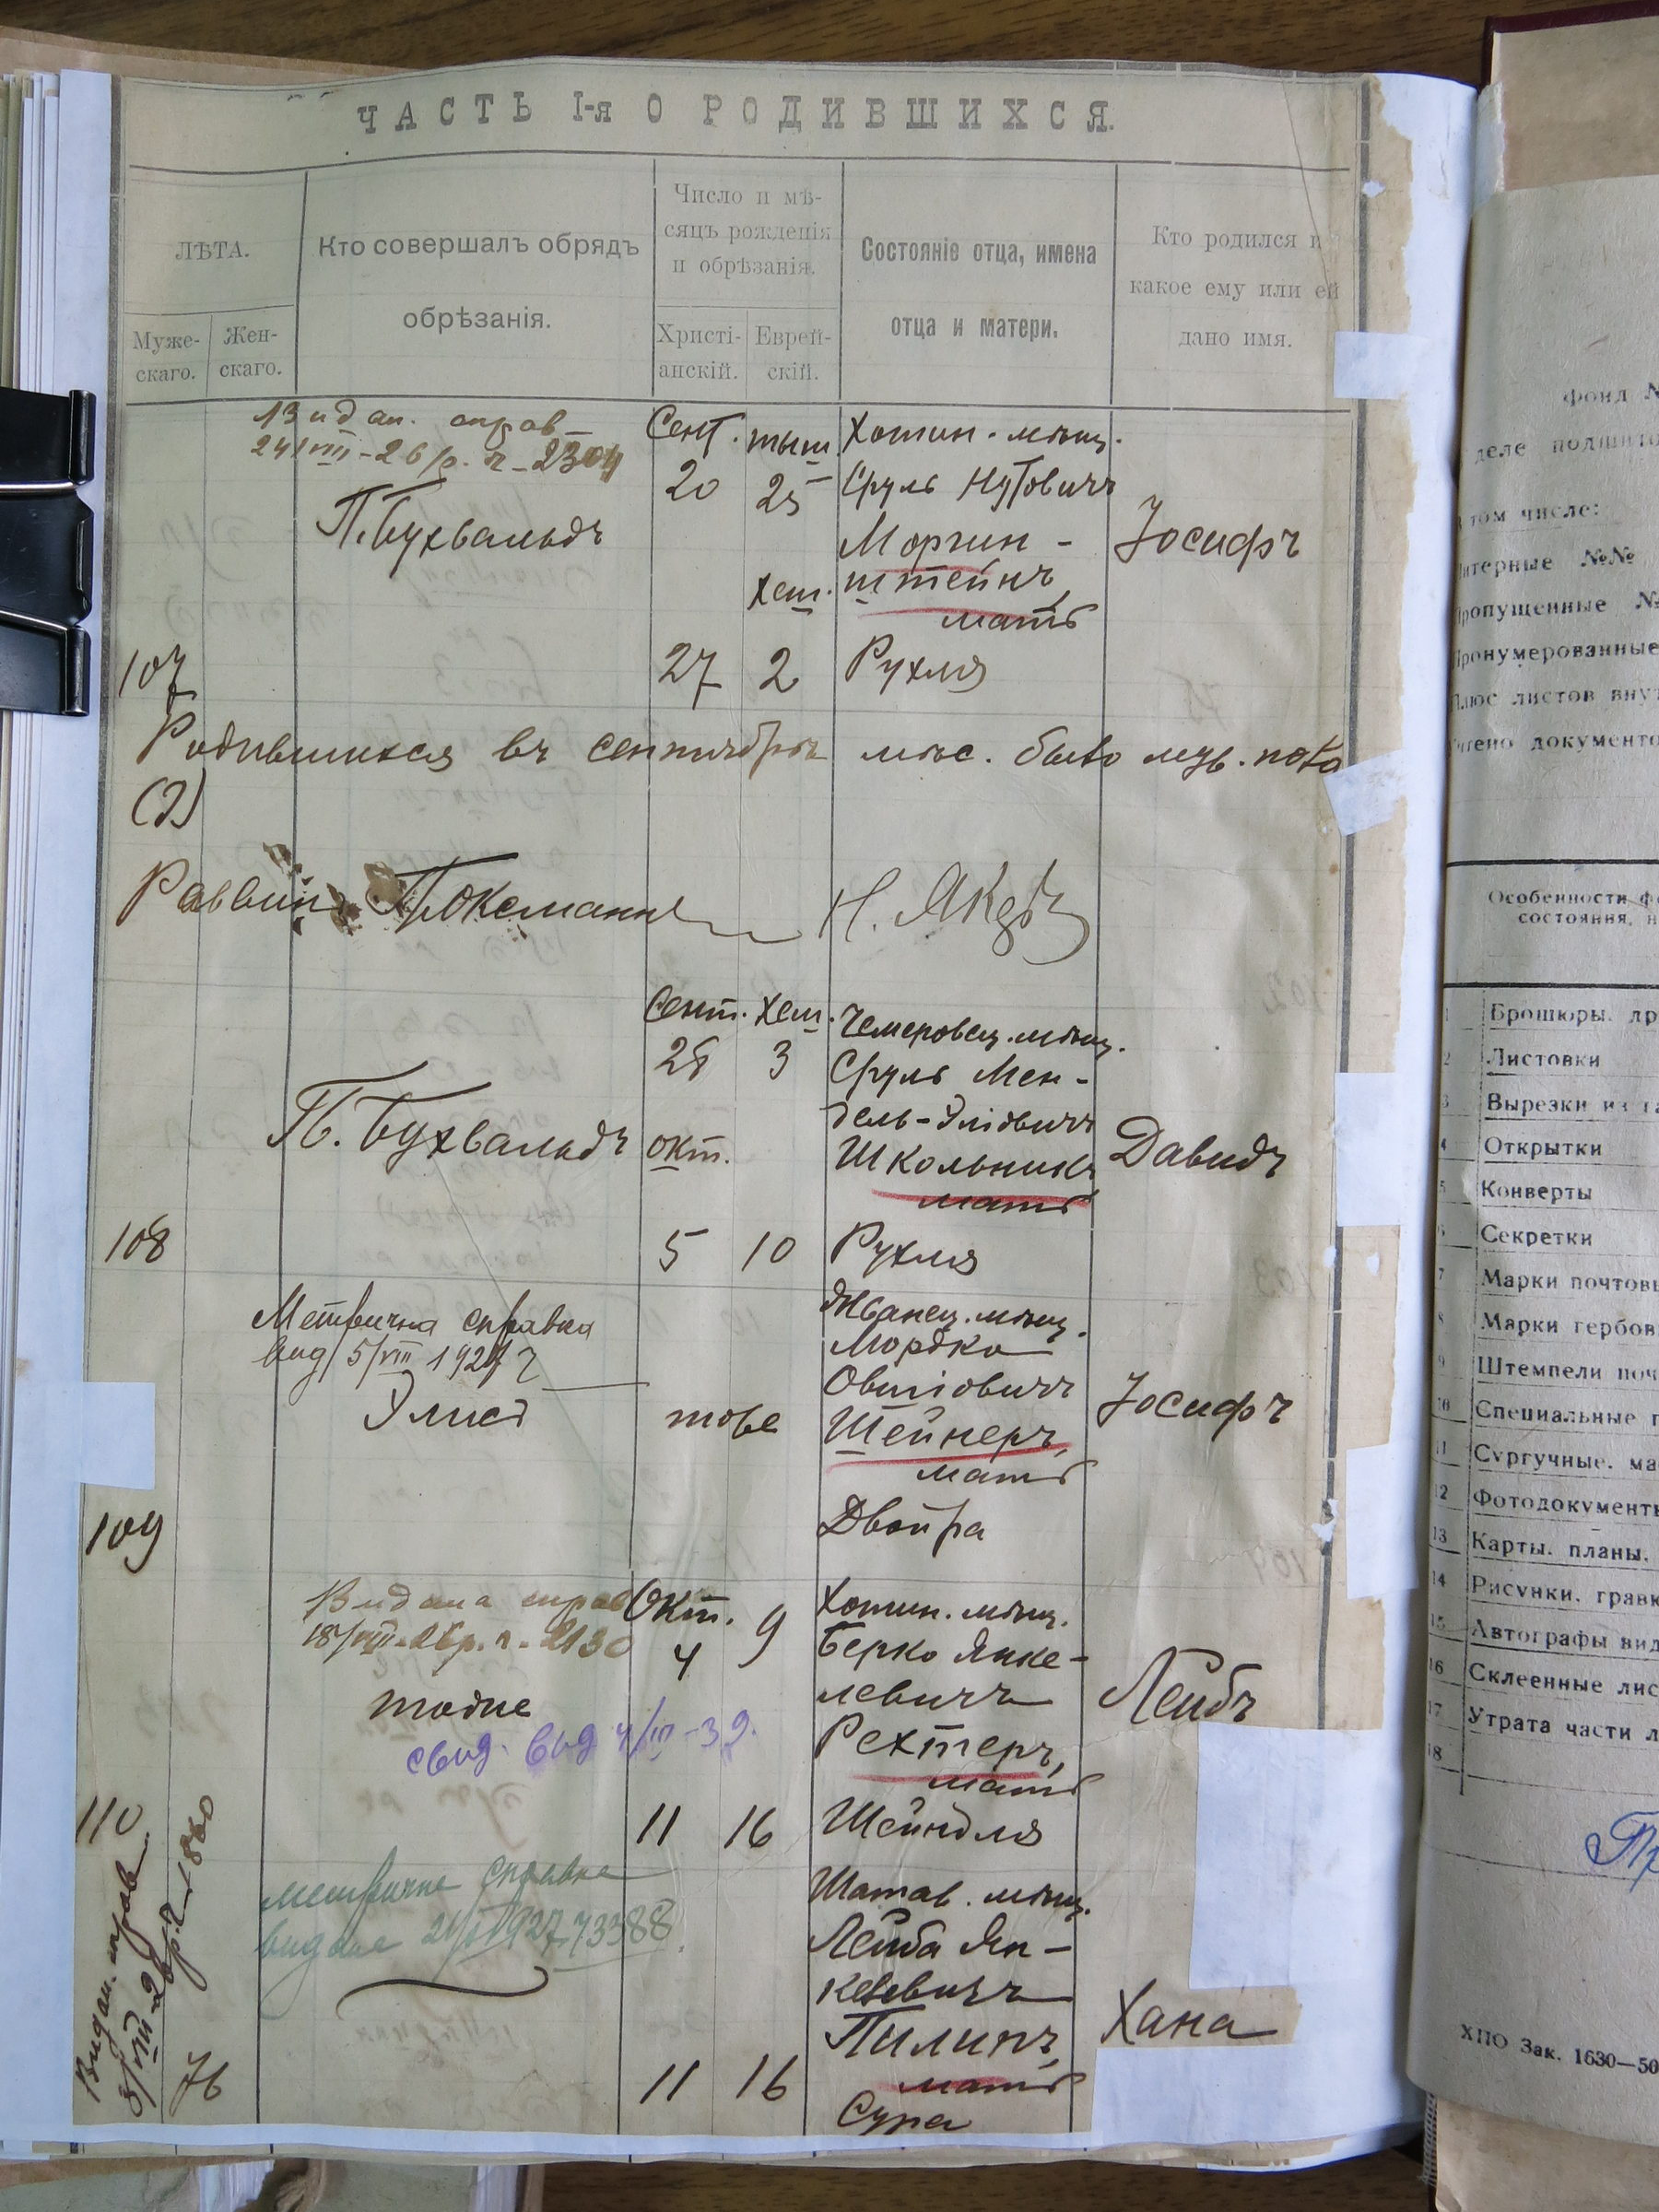 ЧАСТЬ I-я О РОДИВШИХСЯ.
ЛѢТА.
Муже-
скаго.
Жен-
скаго.
Кто совершалъ обрядъ
обрѣзанія.
Число и мѣ-
сяцъ рожденія
и обрѣзанія.
Христі-
анскій.
Еврей-
скій.
Состояніе отца, имена
отца и матери.
Кто родился и
какое ему или ей
дано имя.
Видан. справ
24/VIII-26 р. ч-2304
П. Бухвальдъ
107
Сент. тыш.
20 25
Хеш.
27 2
Хотин. мѣщ.
Сруль Нутовичъ
Моргин-
штейнъ,
мать
Рухля
Іосифъ
Родившихся въ сентябрѣ мѣс. было муж. пола
Раввинъ
108
П. Бухвальдъ
Сент. Хеш.
28 3
окт.
5 10
Чемеровец. мѣщ.
Сруль Мен-
дель-Эліовичъ
Школьникъ
мать
Рухля
Давидъ
109
Метрична справка
вид 5/VIII 1927 г
тоже
Жванец. мѣщ.
Мордко
Овшіовичъ
Шейнеръ,
мать
Двойра
Іосифъ
110
Видана справ
18/VIII-26р. ч-2130
тоже
свид. вид 4/III-39.
Окт. 9
4
11 16
Хотин. мѣщ.
Берко Янке-
левичъ
Рехтеръ,
мать
Шейндля
Лейбъ
Видан. справ
8/VIII-26р. ч-1860
76
метрична справка
видана
11 16
Шатав. мѣщ.
Лейба Ян-
келевичъ
Пилипъ,
мать
Сура
Хана
фонд №
деле подшито
том числе:
итерные №№
ропущенные №
ронумерованные
люс листов вну
чтено документо
Особенности ф
состояния, н
1 Брошюры. пр
2 Листовки
3 Вырезки из га
4 Открытки
5 Конверты
6 Секретки
7 Марки почтовы
8 Марки гербов
9 Штемпели поч
10 Специальные п
11 Сургучные. ма
12 Фотодокументы
13 Карты. планы.
14 Рисунки. грав
15 Автографы вид
16 Склеенные лис
17 Утрата части л
18
ХПО Зак. 1630—50